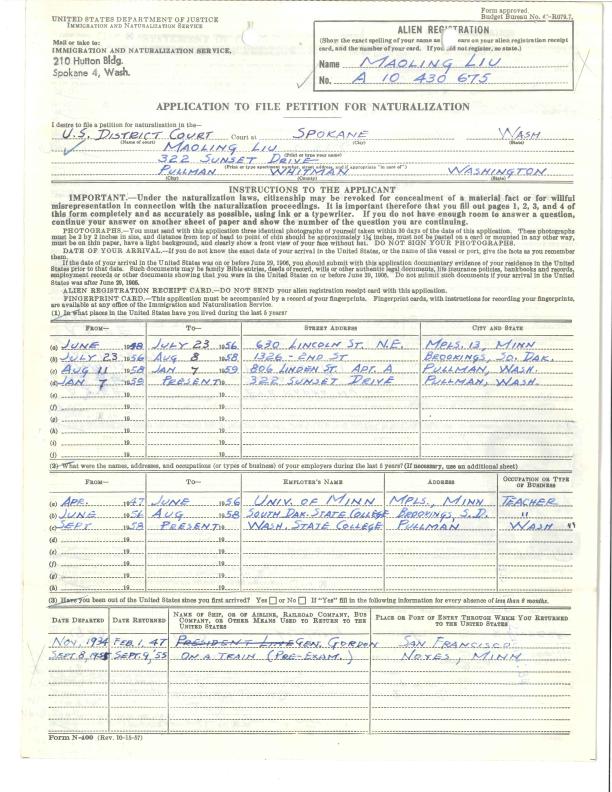 UNITED STATES DEPARTMENT OF JUSTICE
IMMIGRATION AND NATURALIZATION SERVICE
Form approved.
Budget Bureau No. 43-R079.7.
Mail or take to:
IMMIGRATION AND NATURALIZATION SERVICE,
210 Hutton Bldg.
Spokane 4, Wash.
ALIEN REGISTRATION
(Show the exact spelling of your name as ears on your alien registration receipt
card, and the number of your card. If you did not register, so state.)
Name MAOLING LIU
No. A 10 430 675
APPLICATION TO FILE PETITION FOR NATURALIZATION
I desire to file a petition for naturalization in the—
U.S. DISTRICT COURT Court at SPOKANE WASH
(Name of court) (City) (State)
MAOLING LIU
(Print or type your name)
322 SUNSET DRIVE
(Print or type apartment number, street address, and if appropriate "in care of")
PULLMAN WHITMAN WASHINGTON
(City) (County) (State)
INSTRUCTIONS TO THE APPLICANT
IMPORTANT.—Under the naturalization laws, citizenship may be revoked for concealment of a material fact or for willful
misrepresentation in connection with the naturalization proceedings. It is important therefore that you fill out pages 1, 2, 3, and 4 of
this form completely and as accurately as possible, using ink or a typewriter. If you do not have enough room to answer a question,
continue your answer on another sheet of paper and show the number of the question you are continuing.
PHOTOGRAPHS.—You must send with this application three identical photographs of yourself taken within 30 days of the date of this application. These photographs
must be 2 by 2 inches in size, and distance from top of head to point of chin should be approximately 1¼ inches; must not be pasted on a card or mounted in any other way,
must be on thin paper, have a light background, and clearly show a front view of your face without hat. DO NOT SIGN YOUR PHOTOGRAPHS.
DATE OF YOUR ARRIVAL.—If you do not know the exact date of your arrival in the United States, or the name of the vessel or port, give the facts as you remember
them.
If the date of your arrival in the United States was on or before June 29, 1906, you should submit with this application documentary evidence of your residence in the United
States prior to that date. Such documents may be family Bible entries, deeds of record, wills or other authentic legal documents, life insurance policies, bankbooks and records,
employment records or other documents showing that you were in the United States on or before June 29, 1906. Do not submit such documents if your arrival in the United
States was after June 29, 1906.
ALIEN REGISTRATION RECEIPT CARD.—DO NOT SEND your alien registration receipt card with this application.
FINGERPRINT CARD.—This application must be accompanied by a record of your fingerprints. Fingerprint cards, with instructions for recording your fingerprints,
are available at any office of the Immigration and Naturalization Service.
(1) In what places in the United States have you lived during the last 5 years?
FROM— TO— STREET ADDRESS CITY AND STATE
(a) JUNE 1948 JULY 23 1956 630 LINCOLN ST. N.E. MPLS. 13, MINN
(b) JULY 23 1956 AUG 8 1958 1326 - 2ND ST BROOKINGS, SO. DAK.
(c) AUG 11 1958 JAN 7 1959 806 LINDEN ST. APT. A PULLMAN, WASH.
(d) JAN 7 1959 PRESENT 19 322 SUNSET DRIVE PULLMAN, WASH.
(e) 19 19
(f) 19 19
(g) 19 19
(h) 19 19
(i) 19 19
(j) 19 19
(2) What were the names, addresses, and occupations (or types of business) of your employers during the last 5 years? (If necessary, use an additional sheet)
FROM— TO— EMPLOYER'S NAME ADDRESS OCCUPATION OR TYPE OF BUSINESS
(a) APR. 1947 JUNE 1956 UNIV. OF MINN MPLS., MINN TEACHER
(b) JUNE 1956 AUG 1958 SOUTH DAK. STATE COLLEGE BROOKINGS, S.D. "
(c) SEPT 1958 PRESENT 19 WASH. STATE COLLEGE PULLMAN WASH "
(d) 19 19
(e) 19 19
(f) 19 19
(g) 19 19
(h) 19 19
(3) Have you been out of the United States since you first arrived? Yes □ or No □ If "Yes" fill in the following information for every absence of less than 6 months.
DATE DEPARTED DATE RETURNED NAME OF SHIP, OR OF AIRLINE, RAILROAD COMPANY, BUS COMPANY, OR OTHER MEANS USED TO RETURN TO THE UNITED STATES PLACE OR PORT OF ENTRY THROUGH WHICH YOU RETURNED TO THE UNITED STATES
NOV, 1934 FEB. 1, 47 PRESIDENT LINE GEN. GORDON SAN FRANCISCO
SEPT. 8, 1955 SEPT. 9, '55 ON A TRAIN (PRE-EXAM.) NOYES, MINN
Form N-400 (Rev. 10-15-57)